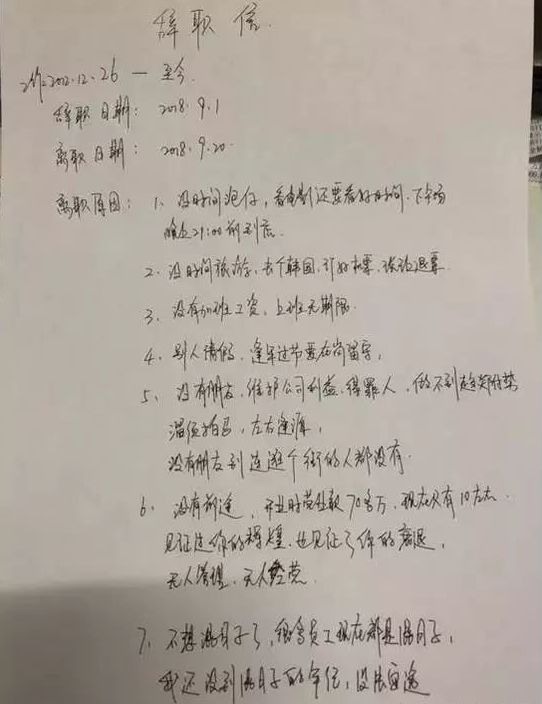 辞职信
工作:2012.12.26 — 至今
辞职日期: 2018.9.1
离职日期: 2018.9.20
离职原因: 1、没时间泡仔,看电影还要看好时间,下午场
晚上21:00前到店.
2、没时间旅游,去个韩国,订好机票,被迫退票
3、没有加班工资,上班无期限.
4、别人请假,逢年过节要在岗留守,
5、没有朋友,维护公司利益,得罪人,做不到趋炎附势
溜须拍马,左右逢源,
没有朋友到连逛个街的人都没有.
6、没有前途,开业时营业额70多万,现在只有10左右.
见证过你的辉煌,也见证了你的衰退,
无人管理,无人经营
7、不想混日子了,很多员工现在都是混日子,
我还没到混日子的年纪,没法